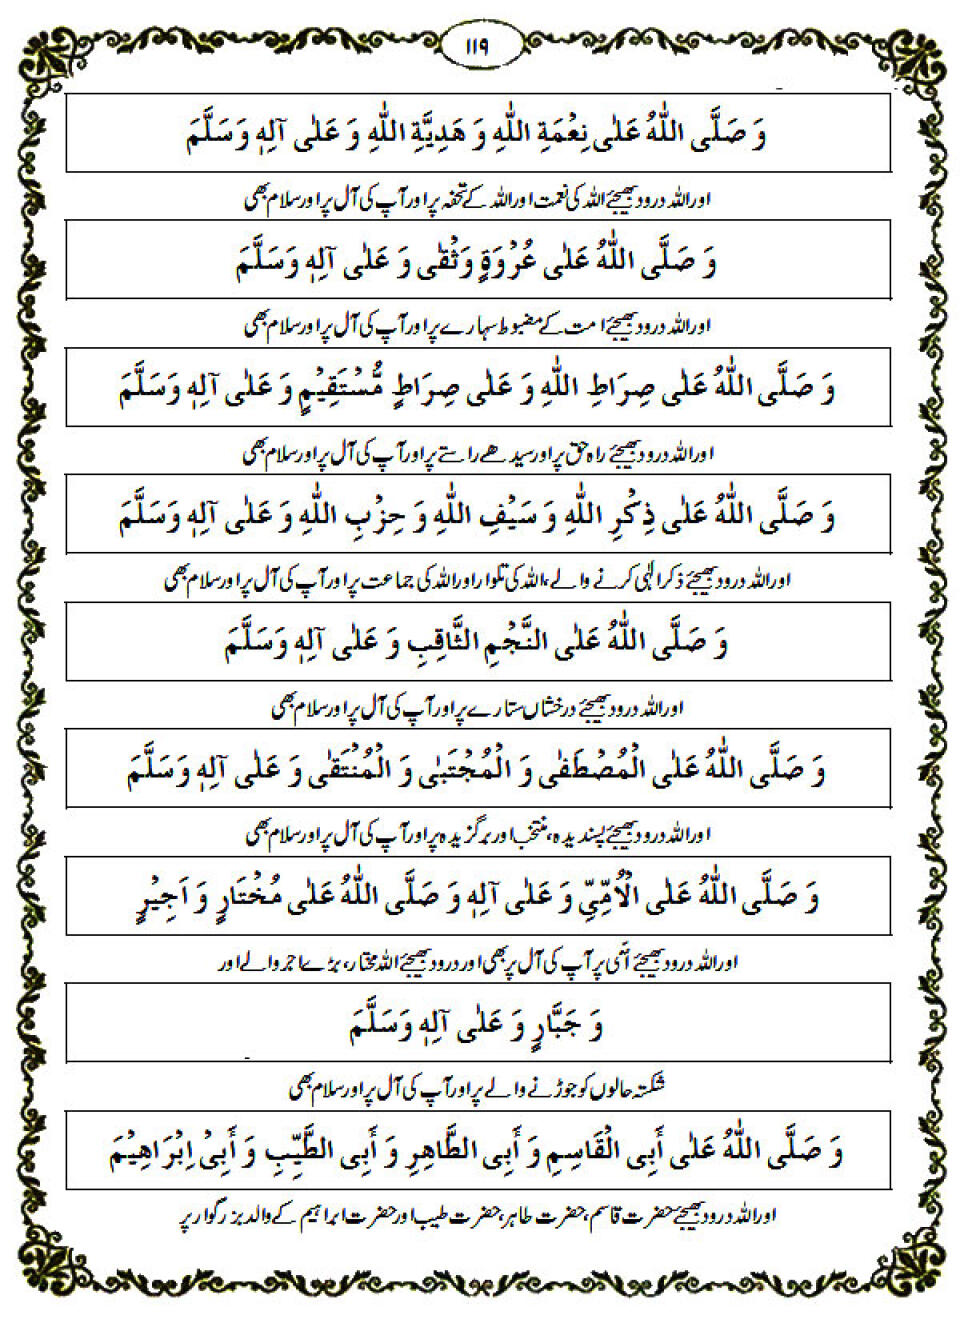 ۱۱۹
وَ صَلَّى اللّٰهُ عَلٰى نِعْمَةِ اللّٰهِ وَ هَدِيَّةِ اللّٰهِ وَ عَلٰى آلِهٖ وَسَلَّمَ
اور اللہ درود بھیجئے اللہ کی نعمت اور اللہ کے تحفہ پر اور آپ کی آل پر اور سلام بھی
وَ صَلَّى اللّٰهُ عَلٰى عُرْوَةٍ وَثْقٰى وَ عَلٰى آلِهٖ وَسَلَّمَ
اور اللہ درود بھیجئے امت کے مضبوط سہارے پر اور آپ کی آل پر اور سلام بھی
وَ صَلَّى اللّٰهُ عَلٰى صِرَاطِ اللّٰهِ وَ عَلٰى صِرَاطٍ مُّسْتَقِيْمٍ وَ عَلٰى آلِهٖ وَسَلَّمَ
اور اللہ درود بھیجئے راہ حق پر اور سیدھے راستے پر اور آپ کی آل پر اور سلام بھی
وَ صَلَّى اللّٰهُ عَلٰى ذِكْرِ اللّٰهِ وَ سَيْفِ اللّٰهِ وَ حِزْبِ اللّٰهِ وَ عَلٰى آلِهٖ وَسَلَّمَ
اور اللہ درود بھیجئے ذکر الٰہی کرنے والے، اللہ کی تلوار اور اللہ کی جماعت پر اور آپ کی آل پر اور سلام بھی
وَ صَلَّى اللّٰهُ عَلٰى النَّجْمِ الثَّاقِبِ وَ عَلٰى آلِهٖ وَسَلَّمَ
اور اللہ درود بھیجئے درخشاں ستارے پر اور آپ کی آل پر اور سلام بھی
وَ صَلَّى اللّٰهُ عَلٰى الْمُصْطَفٰى وَ الْمُجْتَبٰى وَ الْمُنْتَقٰى وَ عَلٰى آلِهٖ وَسَلَّمَ
اور اللہ درود بھیجئے پسندیدہ، منتخب اور برگزیدہ پر اور آپ کی آل پر اور سلام بھی
وَ صَلَّى اللّٰهُ عَلٰى الْاُمِّيِّ وَ عَلٰى آلِهٖ وَ صَلَّى اللّٰهُ عَلٰى مُخْتَارٍ وَ اَجِيْرٍ
اور اللہ درود بھیجئے اُمّی پر آپ کی آل پر بھی اور درود بھیجئے اللہ مختار، بڑے اجر والے اور
وَ جَبَّارٍ وَ عَلٰى آلِهٖ وَسَلَّمَ
شکستہ حالوں کو جوڑنے والے پر اور آپ کی آل پر اور سلام بھی
وَ صَلَّى اللّٰهُ عَلٰى أَبِى الْقَاسِمِ وَ أَبِى الطَّاهِرِ وَ أَبِى الطَّيِّبِ وَ أَبِىْ اِبْرَاهِيْمَ
اور اللہ درود بھیجئے حضرت قاسم، حضرت طاہر، حضرت طیب اور حضرت ابراہیم کے والد بزرگوار پر